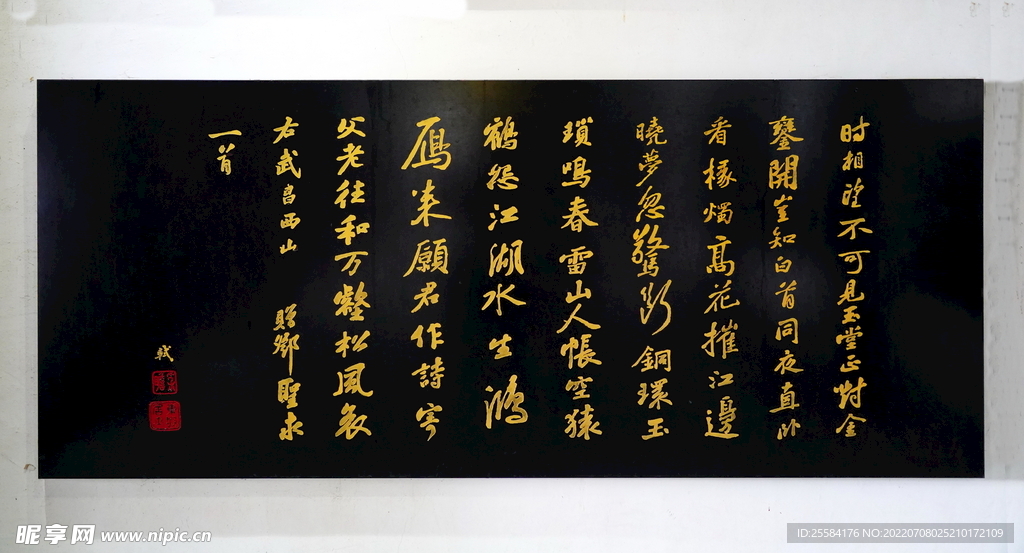 时相望不可見玉堂正对金
鑾開豈知白首同夜直卧
看椽燭高花摧江邊
曉夢忽驚斷銅環玉
瑣鳴春雷山人帳空猿
鶴怨江湖水生鴻
鴈来願君作詩寄
父老往和万壑松風哀
右武昌西山 贈鄧聖求
一首
軾
昵享网 www.nipic.cn
ID:25584176 NO:20220708025210172109